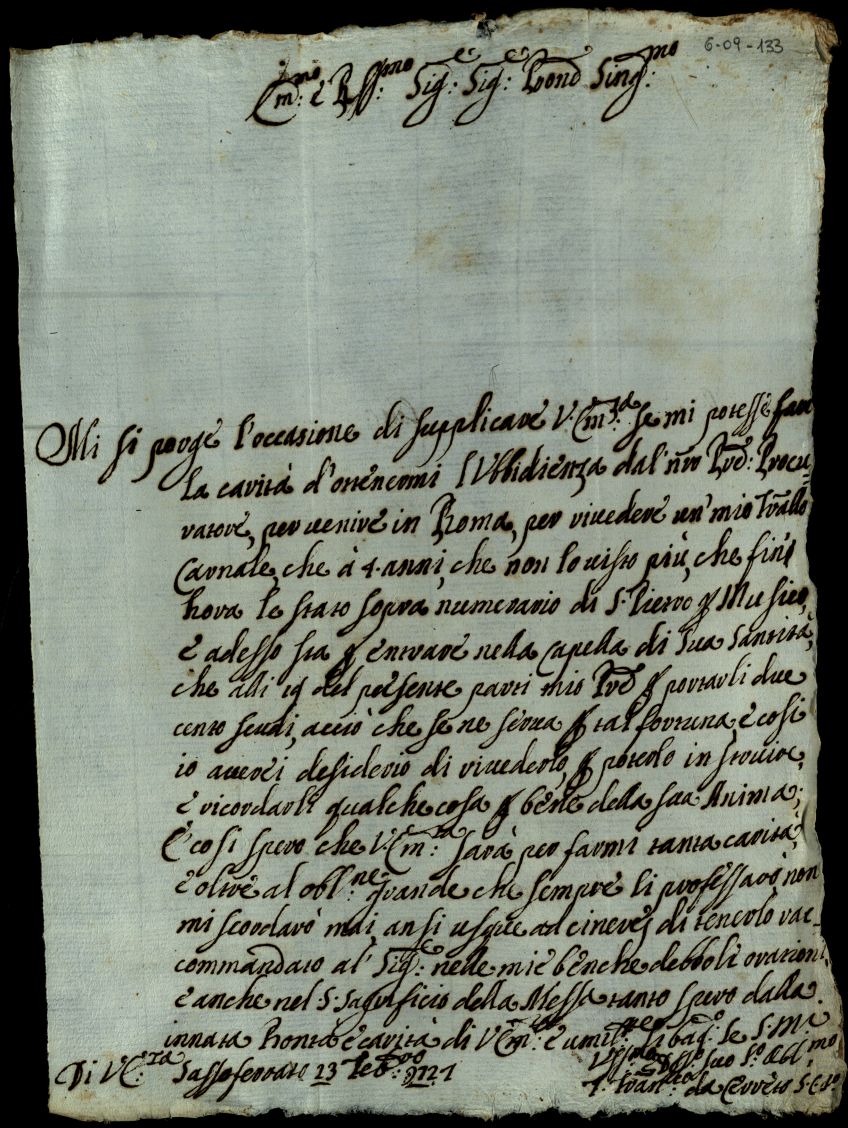 6-09-133
Em:mo e R.ss:mo Sig:e Sig:e Pron Sing:mo
Mi si porge l'occasione di supplicare V. Em:za se mi potesse fare
la carità d'ottenermi l'Ubbidienza dal nro Pre: Procu=
ratore, per venire in Roma, per rivedere un' mio Frãllo
Carnale, che à 4. anni, che non lo visto più, che fin'
hora le stato sopra numerario di S. Pietro p Musico,
e adesso sta p entrare nella Capella di Sua Santità,
che alli 19 del presente partì mio Pre p portarli due
cento scudi, acciò che se ne serva p tal fortuna, e così
io averei desiderio di rivederlo, p poterlo instruire,
e ricordarli qualche cosa p bene della sua Anima;
E così spero che V. Em:za sarà per farmi tanta carità,
e oltre al obl:ne grande che sempre li professarò non
mi scordarò mai ansi usque ad cineres di tenerlo rac=
commandato al Sig:e nelle mie benche debboli orationi,
e anche nel S. Sagrificio della Messa tanto spero dalla
innata Bontà e carità di V. Em:za e umil:te li bac:o le S. Ma
Di V. E:za Sassoferrato 23 Feb:ro 1721
suo
F. Fran:co da Cerreto